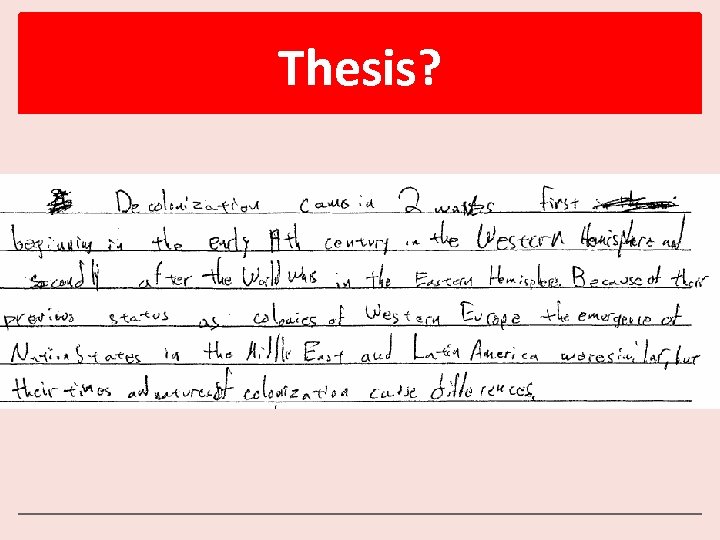 Thesis?
Decolonization came in 2 waves first
beginning in the early 19th century in the Western Hemisphere and
secondly after the World Wars in the Eastern Hemisphere. Because of their
previous status as colonies of Western Europe the emergence of
Nation States in the Middle East and Latin America were similar, but
their times and natures of colonization cause differences.